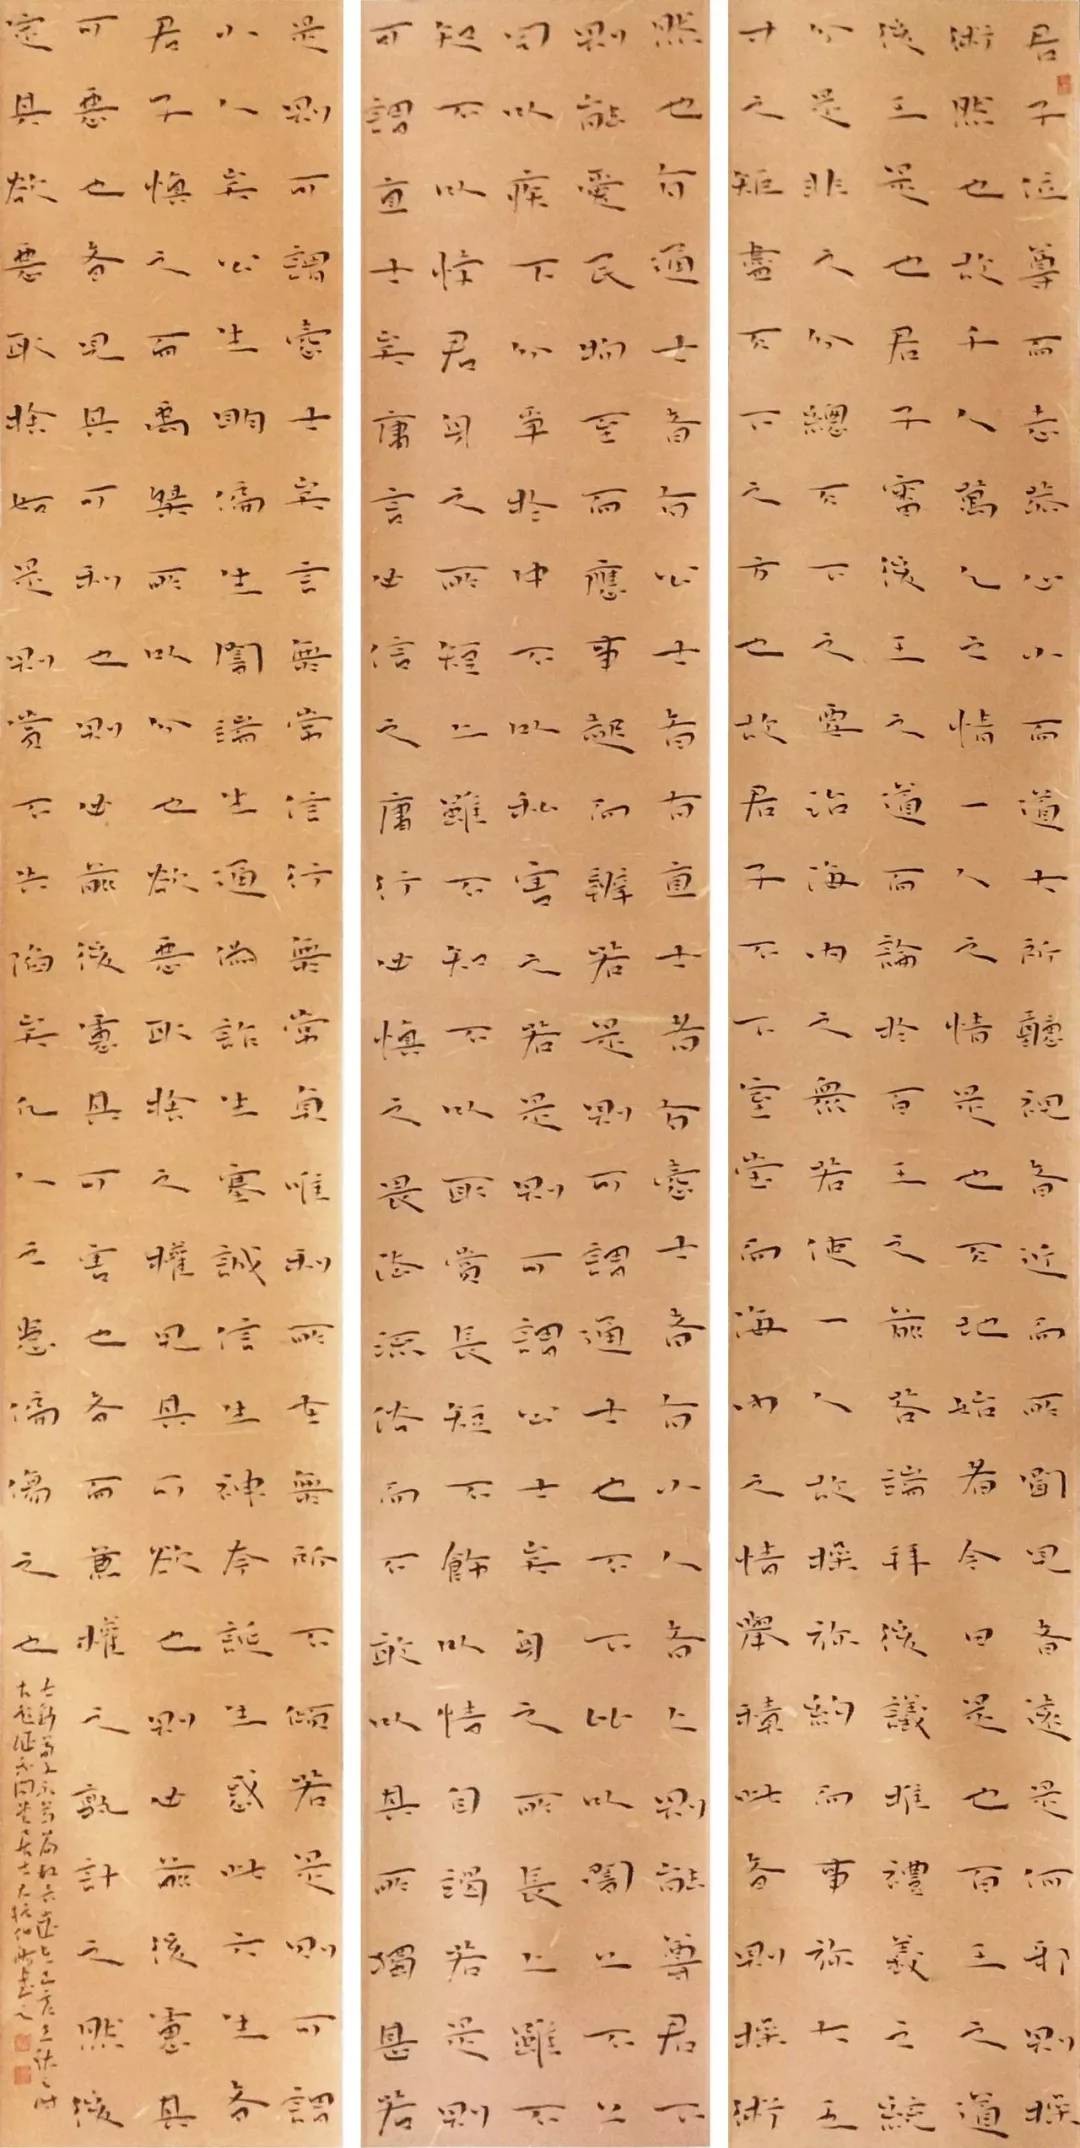 君子位尊而志恭心小而道大所聽視者近而所聞見者遠是何邪則操
術然也故千人萬人之情一人之情是也天地始者今日是也百王之道
後王是也君子審後王之道而論於百王之前若端拜後議推禮義之統
分是非之分總天下之要治海內之衆若使一人故操彌約而事彌大五
寸之矩盡天下之方也故君子不下室堂而海內之情舉積此者則操術
然也有通士者有公士者有直士者有愨士者有小人者上則能尊君下
則能愛民物至而應事起而辨若是則可謂通士也不下比以闇上不上
同以疾下分爭於中不以私害之若是則可謂公士矣身之所長上雖不
知不以悖君身之所短上雖不知不以取賞長短不飾以情自竭若是則
可謂直士矣庸言必信之庸行必慎之畏法流俗而不敢以其所獨甚若
是則可謂愨士矣言無常信行無常貞唯利所在無所不傾若是則可謂
小人矣公生明偏生闇端生通偽詐生塞誠信生神夸誕生惑此六生者
君子慎之而禹桀所以分也欲惡取捨之權見其可欲也則必前後慮其
可惡也者見其可利也則必前後慮其可害也者而兼權之孰計之然後
定其欲惡取捨如是則賞不失陷矣凡人之患偏傷之也